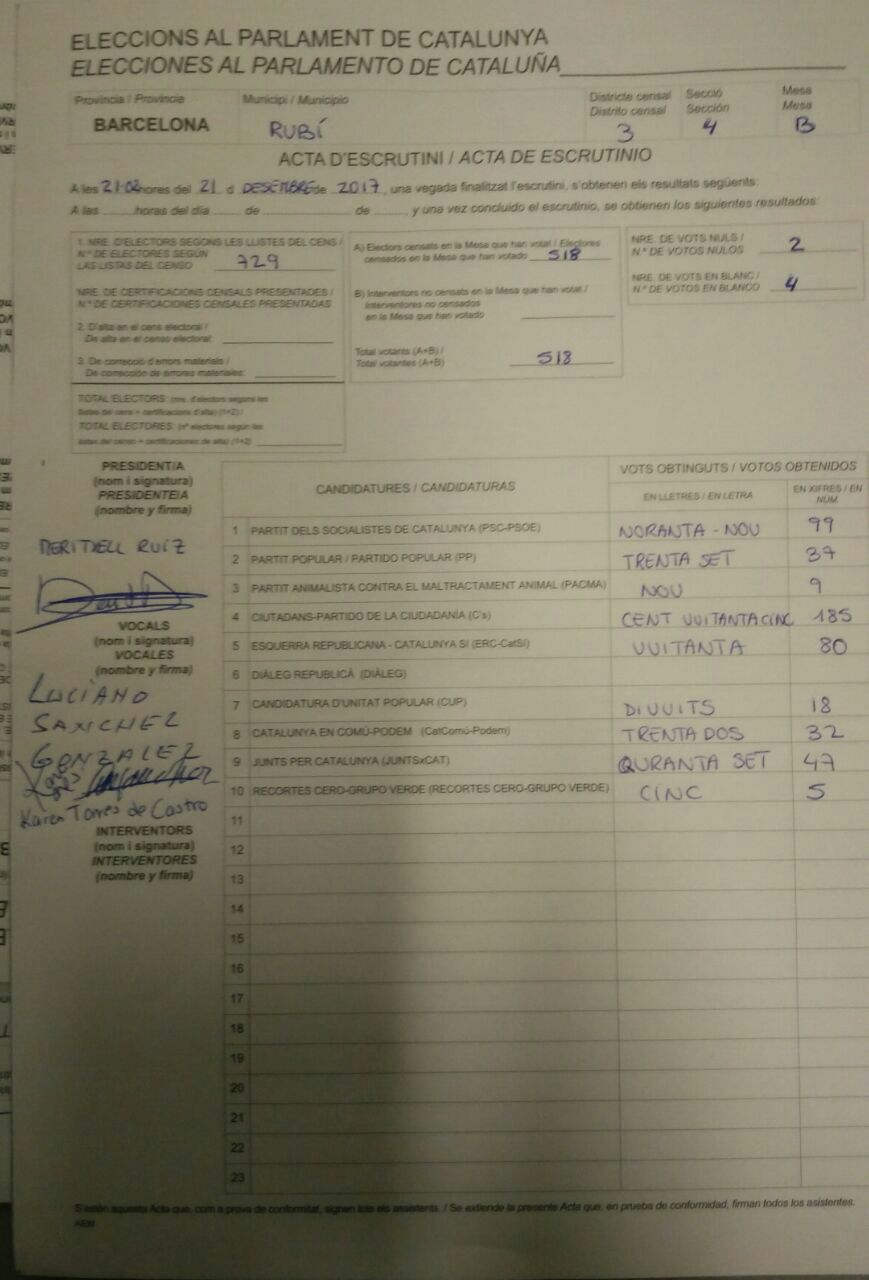 ELECCIONS AL PARLAMENT DE CATALUNYA
ELECCIONES AL PARLAMENTO DE CATALUÑA
Província / Provincia
BARCELONA
Municipi / Municipio
RUBÍ
Districte censal
Distrito censal
3
Secció
Sección
4
Mesa
Mesa
B
ACTA D'ESCRUTINI / ACTA DE ESCRUTINIO
A les 21·02 hores del 21 d DESEMBRE de 2017, una vegada finalitzat l'escrutini, s'obtenen els resultats següents:
A las ____ horas del día ____ de ____ de ____, y una vez concluido el escrutinio, se obtienen los siguientes resultados:
1. NRE. D'ELECTORS SEGONS LES LLISTES DEL CENS /
N.º DE ELECTORES SEGÚN
LAS LISTAS DEL CENSO 729
NRE. DE CERTIFICACIONS CENSALS PRESENTADES /
N.º DE CERTIFICACIONES CENSALES PRESENTADAS
2. D'alta en el cens electoral /
De alta en el censo electoral:
3. De correcció d'errors materials /
De corrección de errores materiales:
TOTAL ELECTORS: (nre. d'electors segons les
llistes del cens + certificacions d'alta) (1+2) /
TOTAL ELECTORES: (nº electores según las
listas del censo + certificaciones de alta) (1+2)
A) Electors censats en la Mesa que han votat / Electores
censados en la Mesa que han votado 518
B) Interventors no censats en la Mesa que han votat /
Interventores no censados
en la Mesa que han votado
Total votants (A+B) /
Total votantes (A+B) 518
NRE. DE VOTS NULS /
N.º DE VOTOS NULOS 2
NRE. DE VOTS EN BLANC /
N.º DE VOTOS EN BLANCO 4
PRESIDENT/A
(nom i signatura)
PRESIDENTE/A
(nombre y firma)
MERITXELL RUIZ
VOCALS
(nom i signatura)
VOCALES
(nombre y firma)
LUCIANO
SANCHEZ
GONZALEZ
Karen Torres de Castro
INTERVENTORS
(nom i signatura)
INTERVENTORES
(nombre y firma)
CANDIDATURES / CANDIDATURAS
VOTS OBTINGUTS / VOTOS OBTENIDOS
EN LLETRES / EN LETRA
EN XIFRES / EN NÚM.
1 PARTIT DELS SOCIALISTES DE CATALUNYA (PSC-PSOE) NORANTA - NOU 99
2 PARTIT POPULAR / PARTIDO POPULAR (PP) TRENTA SET 37
3 PARTIT ANIMALISTA CONTRA EL MALTRACTAMENT ANIMAL (PACMA) NOU 9
4 CIUTADANS-PARTIDO DE LA CIUDADANÍA (C's) CENT VUITANTA CINC 185
5 ESQUERRA REPUBLICANA - CATALUNYA SÍ (ERC-CatSí) VUITANTA 80
6 DIÀLEG REPUBLICÀ (DIÀLEG)
7 CANDIDATURA D'UNITAT POPULAR (CUP) DIVUITS 18
8 CATALUNYA EN COMÚ-PODEM (CatComú-Podem) TRENTA DOS 32
9 JUNTS PER CATALUNYA (JUNTSxCAT) QURANTA SET 47
10 RECORTES CERO-GRUPO VERDE (RECORTES CERO-GRUPO VERDE) CINC 5
11
12
13
14
15
16
17
18
19
20
21
22
23
S'estén aquesta Acta que, com a prova de conformitat, signen tots els assistents. / Se extiende la presente Acta que, en prueba de conformidad, firman todos los asistentes.